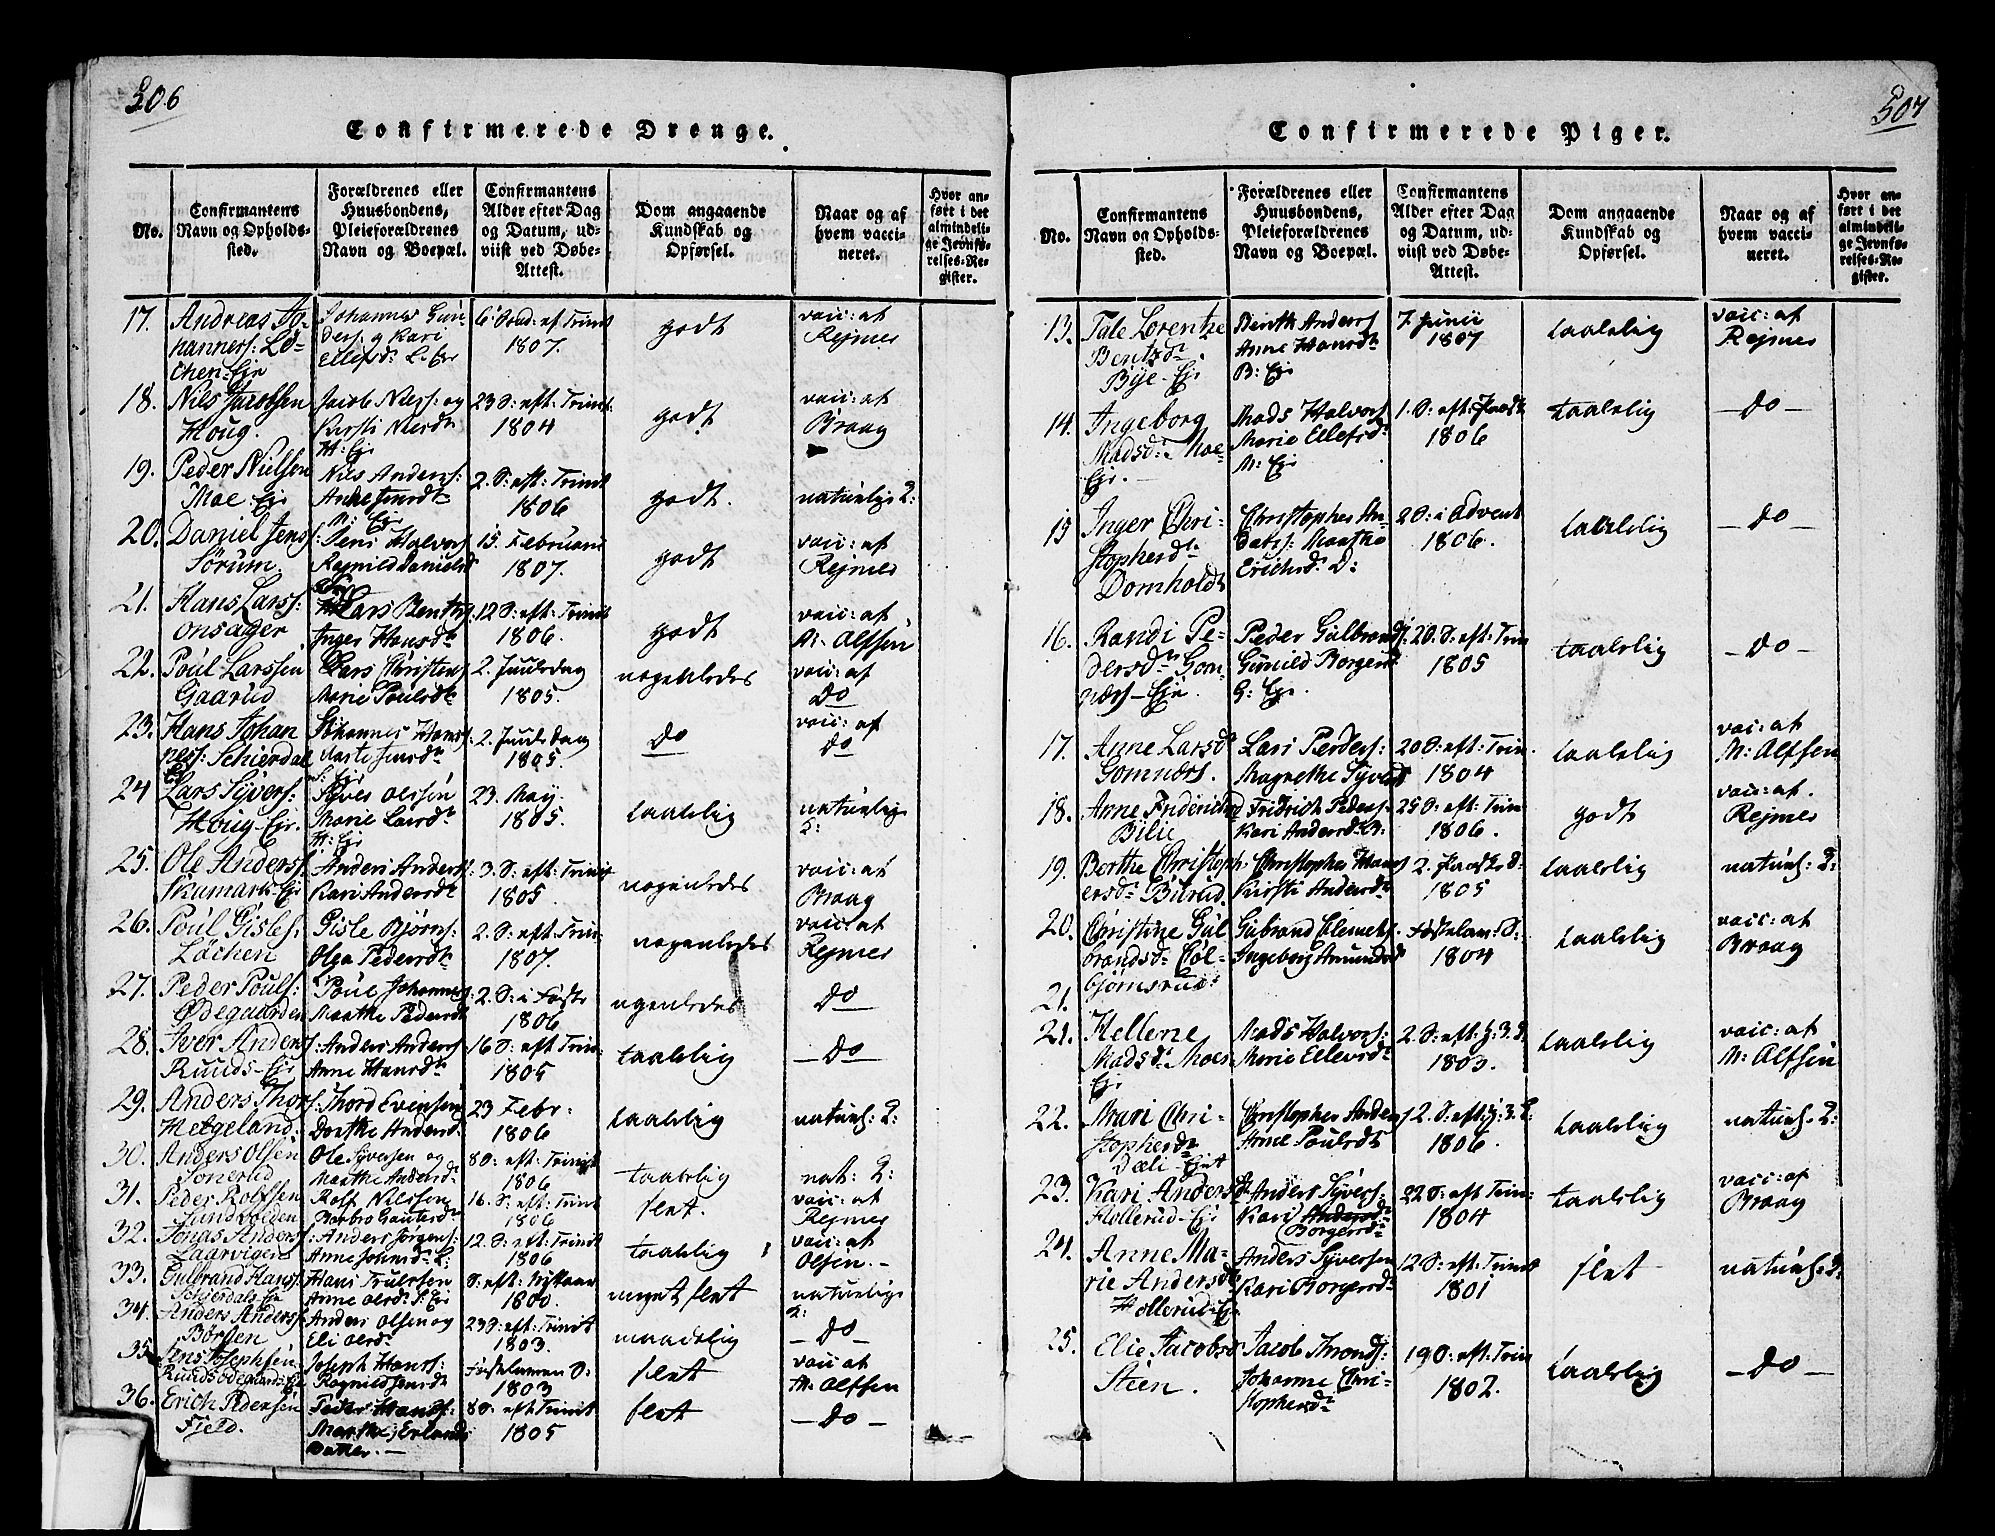 506
Confirmerede Drenge.
No.
Confirmantens Navn og Opholdssted.
Forældrenes eller Huusbondens, Pleieforældrenes Navn og Boepæl.
Confirmantens Alder efter Dag og Datum, udviist ved Døbe-Attest.
Dom angaaende Kundskab og Opførsel.
Naar og af hvem vaccineret.
Hvor anført i det almindelige Jevnførelses-Register.
17. Andreas Johannes: Løchen Eje
Johannes Gunders: og Kari Ellefsd. L: Eje
6 Sønd: ef. Trinit 1807.
godt
vacc: af Rejmes
18. Nils Jacobsen Houg.
Jacob Niels: og Kirsti Niesdr. H: Eje
23 S: eft: Trinit 1804
godt
vacc: af Braag
19. Peder Nielsen Moe Eje
Nils Anders: M: Eje
2. S: eft: Trinit 1806
godt.
naturlige 2:
20. Daniel Jens: Sørum.
Jens Halvors: Regnild Danielsd
15. Februarii 1807.
godt
vacc: af Rejmes
21. Hans Lars: Onsager
Lars Bents: Inger Hansdr.
12 S: eft: Trinit 1806.
godt
vacc: af M: Alfsen
22. Poul Larssen Gaarud
Lars Christens: Marie Poulsdr.
2. Juuledag 1805.
nogenledes
vacc: af Do
23. Hans Johannes: Schierdal Ej
Johannes Hans: S: Eje
2. Juuledag 1805.
Do
vacc: af Do
24 Lars Syvers: Houg-Eje.
Syver Olssøn Marie Larsdr. H: Eje
23. May 1805.
taalelig
naturlige 2:
25. Ole Anders: Skamark Eje
Anders Anders: Kari Andersdr.
3. S: eft: Trinit 1805.
nogenledes
vacc: af Braag
26. Poul Gisles: Løchen
Gisle Bjørns: Olga Pedersdr.
2. S: eft: Trini. 1807.
nogenledes
vacc: af Rejmes
27. Peder Pouls: Ødegaarden
Poul Johannes: Marthe Pedersdr
2. S: i Faste 1806
nogenledes
Do
28. Iver Anders: Ruuds-Eje
Anders Anders: Anne Hansdr.
16 S: eft Trini. 1805
taalelig
— Do —
29. Anders Thors: Hetgeland:
Thord Evensen Dorthe Andersd.
23 Febr. 1806
taalelig
naturl: 2:
30. Anders Olsen Sonerud
Ole Syversen og Marthe Andersd.
8 S: eft: Trinit 1806
taalelig
nat: 2:
31. Peder Rolfsen Sundvolden
Rolf Nilssen Barbro Gautesdr.
16. S: eft: Trinit 1806
slet.
vacc: af Rejmes
32. Jonas Anders: Laarvigen
Anders Jørgens: Anne Johnsd. L:
12. S: eft: Trinit 1806
taalelig
vacc: af Olsen. —
33. Gulbrand Hans: Schierdals Eje
Hans Trulssen Anne Olesd. S: Eje
S: eft: Nytaar 1800.
meget slet
naturlige 2:
34. Anders Anders: Børgen
Anders Olsen og Eli Olesd.
23 S: eft: Trinit 1803.
maadelig
— Do —
35. Jens Josephsen Ruuds Ødegaards Eje
Joseph Hans: Ragnild Jensdr.
Fastelavens S: 1803
slet
vacc: af M: Alfsen
36. Erich Pedersen Field.
Peder Hans: Marthe Erlands Datter. —
8 S: eft Trinit 1805
slet
— Do —
507
Confirmerede Piger.
No.
Confirmantens Navn og Opholdssted.
Forældrenes eller Huusbondens, Pleieforældrenes Navn og Boepæl.
Confirmantens Alder efter Dag og Datum, udviist ved Døbe-Attest.
Dom angaaende Kundskab og Opførsel.
Naar og af hvem vaccineret.
Hvor anført i det almindelige Jevnførelses-Register.
13. Tale Lorentze Bentsdr. Bÿe-Eje
Benth Anders: Anne Hansdr. B: Eje
7 Junii 1807
taalelig
vacc: af Rejmes
14. Ingeborg Madsd: Moe-Eje. —
Mads Halvors: Marie Ellefsdr. M: Eje
1. S: eft: Paaske 1806
taalelig
— Do —
15 Inger Christophersdr. Domholdt
Christopher Marthe Erichsdr. D:
2 S: i Advent 1806.
taalelig
— Do —
16. Randi Pedersdr. Gomnæs-Eje.
Peder Gulbrands: Gunild Borgersd. G: Eje.
20. S: eft: Trin 1805
taalelig
— Do —
17. Anne Larsdr Gomnæs.
Lars Peders: Magrethe Syversd
20 S: eft: Trin. 1804
taalelig
vacc: af M: Alfsen
18. Anne Fridrichsd Bilie
Fridrich Peders: Kari Andersdr. B:
25 S: eft: Trin 1806.
godt
vacc: af. Rejmes
19. Berthe Christophersdr. Bilrud
Christopher Hans: Kirsti Andersdr.
2. Paaske D: 1805
taalelig
naturl: 2:
20. Christine Gulbrandsdr. Gulbjørnsrud:
Gulbrand Clemets: Ingeborg Amundsd
Fastelav: S: 1804
taalelig
vacc: af Braag
21.
21. Hellene Madsdr. Moes Eje
Mads Halvors: Marie Ellevsdr.
2. S: eft: H: 3. K: 1803.
taalelig
vacc: af M: Alfsen
22. Mari Christophersdr. Dæli-Ejet
Christopher Anders: Anne Poulsdr
2. S: eft: H: 3. K: 1806.
taalelig
naturl: 2:
23. Kari Andersdr. Hollerud-Eje
Anders Syvers: Kari Andersdr. Borgersdr.
22 S: eft Trin: 1804
taalelig
vacc: af Braag
24. Anne Marie Andersdr. Hollerud-Eje
Anders Syversen Kari Borgersdr.
12 S: eft: Trinit 1801
slet
naturl: 2:
25. Elie Jacobsd Steen.
Jacob Thronds: Johanne Christophersdr.
19 S: eft: Trin 1802.
taalelig
— Do —